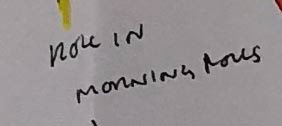 ROLL IN
MORNING ROLLS